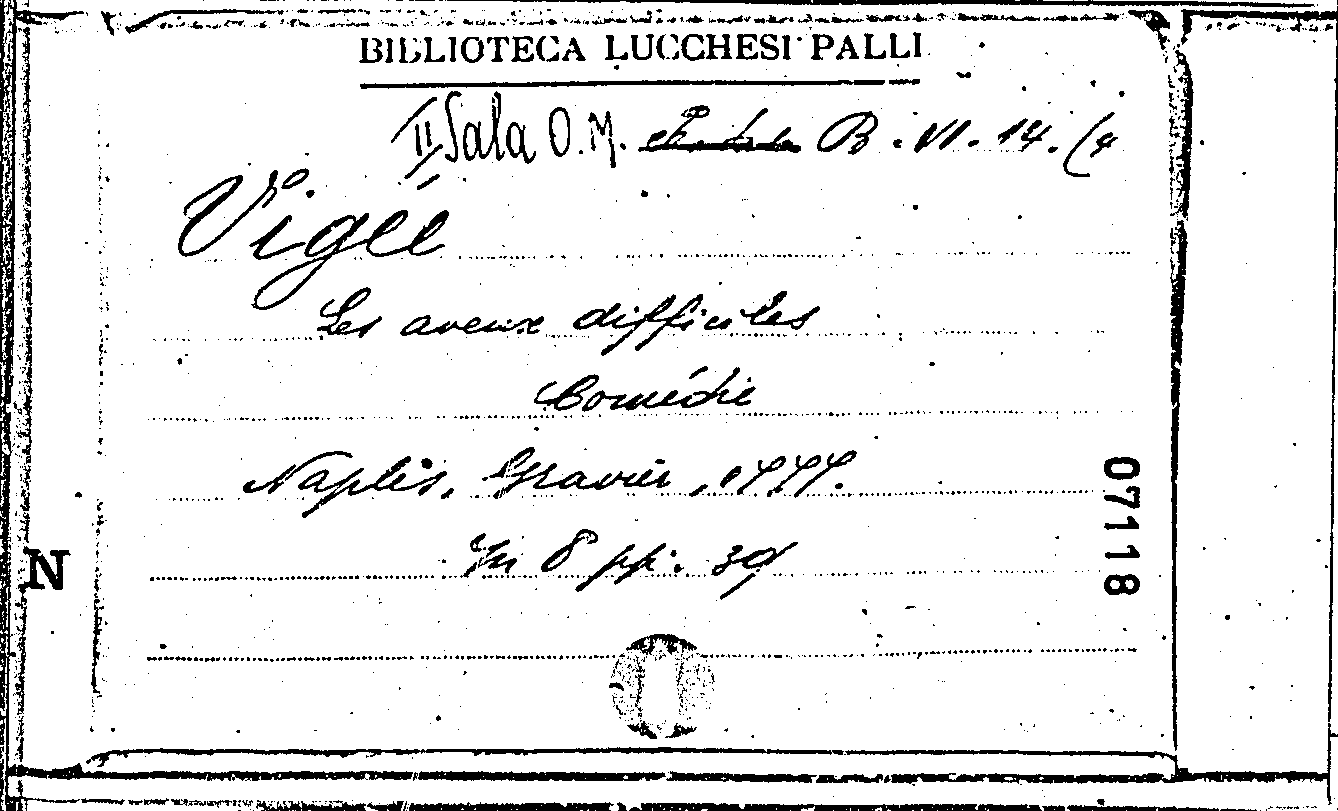 BIBLIOTECA LUCCHESI PALLI
II Sala O.M. B. VI. 14. (4
Vigée
Les aveux difficiles
Comédie
Naples, Gravier, 1777.
In 8 pp. 39
07118
N